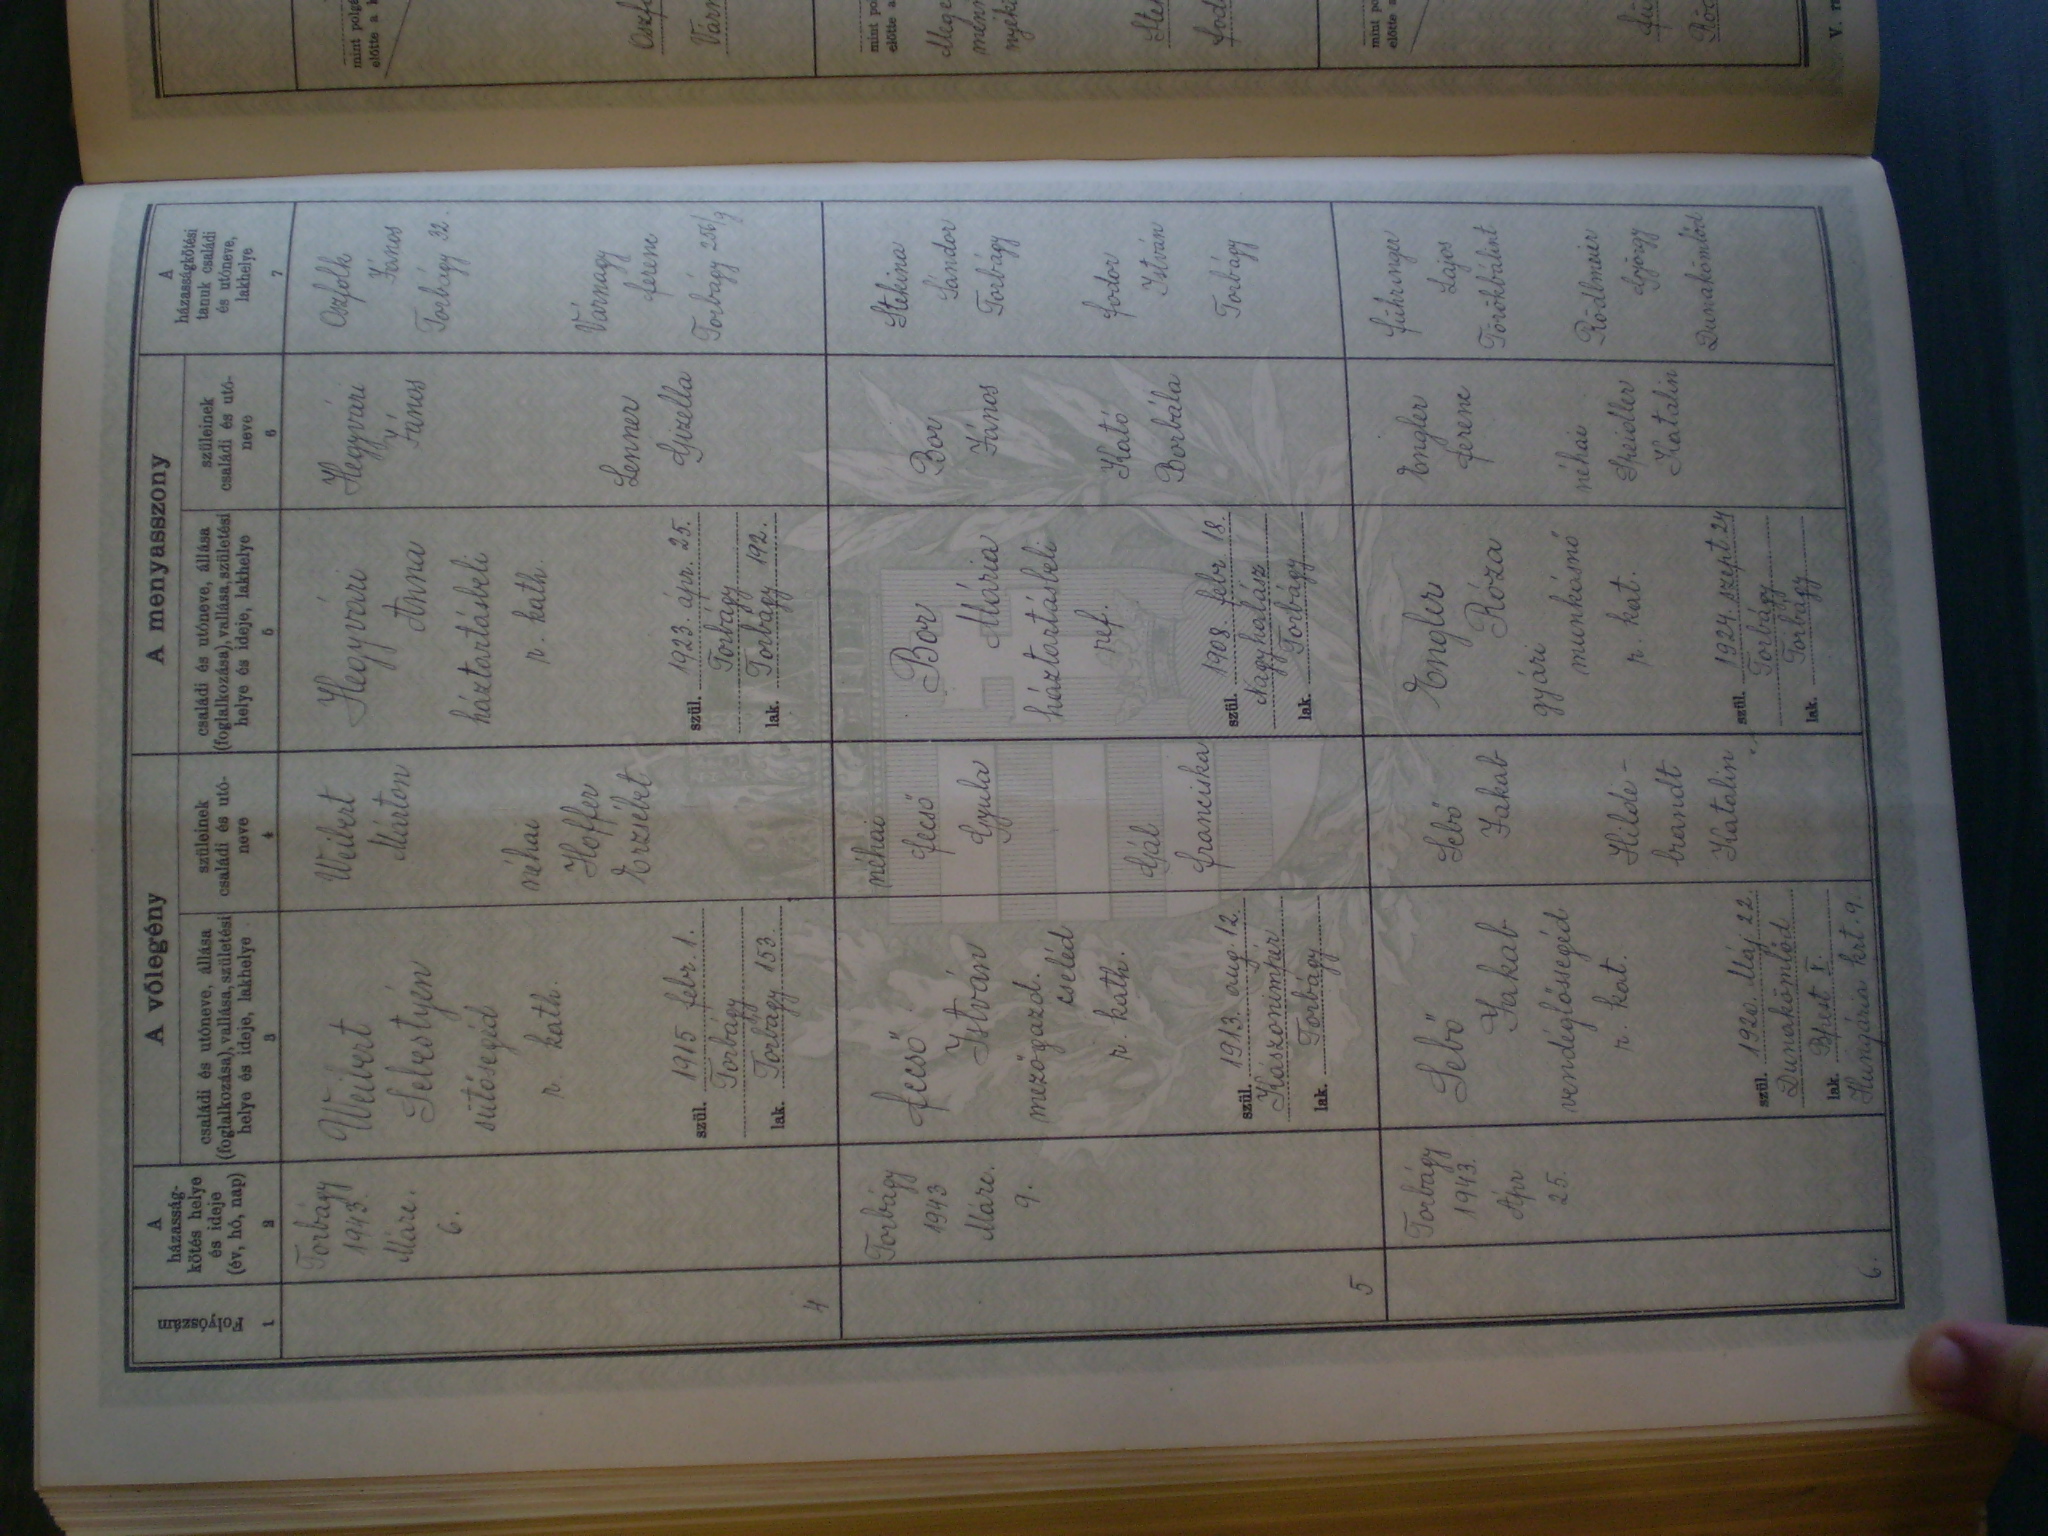 Folyószám
1
A
házasság-
kötés helye
és ideje
(év, hó, nap)
2
A vőlegény
családi és utóneve, állása
(foglalkozása), vallása, születési
helye és ideje, lakhelye
3
szüleinek
családi és utó-
neve
4
A menyasszony
családi és utóneve, állása
(foglalkozása), vallása, születési
helye és ideje, lakhelye
5
szüleinek
családi és utó-
neve
6
A
házasságkötési
tanuk családi
és utóneve,
lakhelye
7
4
Torbágy
1943.
Márc.
6.
Weibert
Sebestyén
sütősegéd
r. kath.
szül. 1915 febr. 1.
Torbágy
lak. Torbágy 153.
Weibert
Márton
néhai
Hoffer
Erzsébet
Hegyvári
Anna
háztartásbeli
r. kath.
szül. 1923. ápr. 25.
Torbágy
lak. Torbágy 192.
Hegyvári
János
Lenner
Gizella
Oszfolk
János
Torbágy 32.
Várnagy
Ferenc
Torbágy 256/9
5
Torbágy
1943
Márc.
9.
Fecső
István
mezőgazd.
cseléd
r. kath.
szül. 1913. aug. 12.
Kászonimpér
lak. Torbágy
néhai
Fecső
Gyula
Gál
Franciska
Bor
Mária
háztartásbeli
ref.
szül. 1908. febr. 18.
Nagyhalász
lak. Torbágy
Bor
János
Kató
Borbála
Stekina
Sándor
Torbágy
Fodor
István
Torbágy
6.
Torbágy
1943.
Ápr
25.
Sebő
Jakab
vendéglőssegéd
r. kat.
szül. 1920. Máj 22.
Dunakömlőd
lak. Bpest X.
Hungária krt. 9.
Sebő
Jakab
Hilde-
brandt
Katalin
Engler
Róza
gyári
munkásnő
r. kat.
szül. 1924. szept. 24
Torbágy
lak. Torbágy
Engler
Ferenc
néhai
Speidller
Katalin
Führinger
Lajos
Törökbálint
Rödlmeier
György
Dunakömlőd
mint
előtte a
Várn
mint po
előtte a
Mege
Ste
Fod
mint po
előtte a
V.